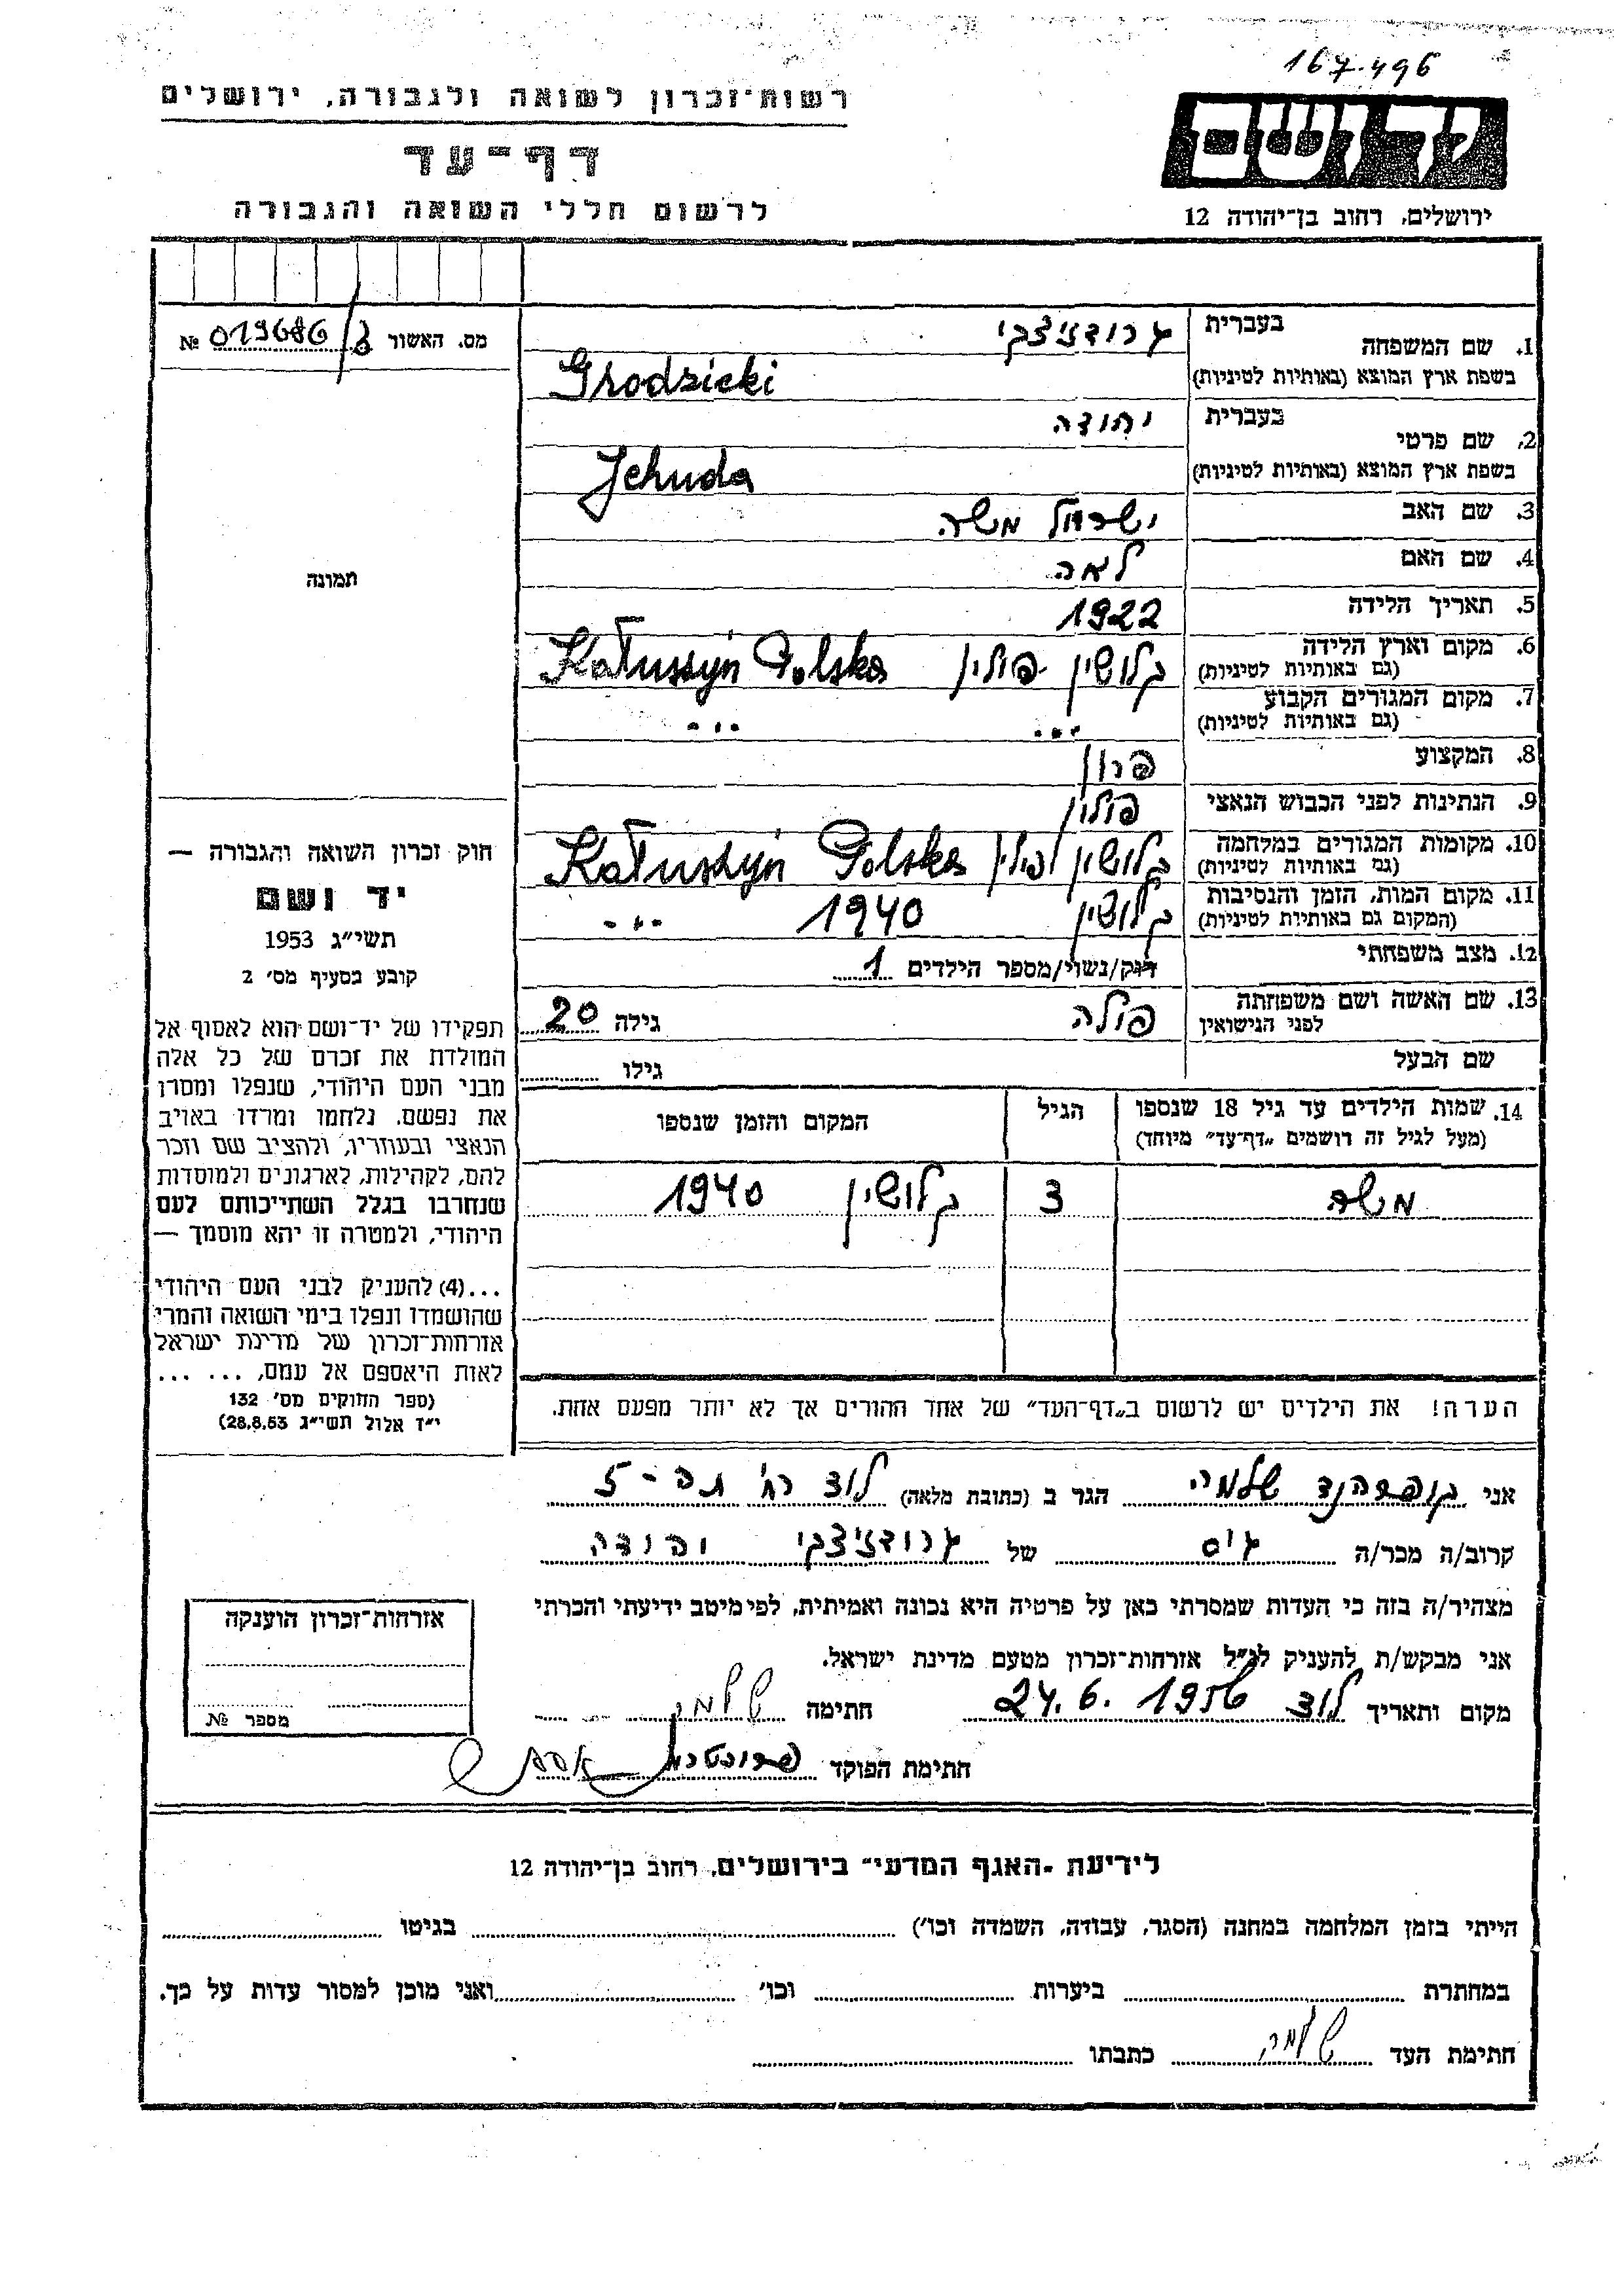 167.496
יד ושם
ירושלים, רחוב בן־יהודה 12
רשות־זכרון לשואה ולגבורה, ירושלים
דף־עד
לרשום חללי השואה והגבורה
מס. האשור 019686/ № 
1. שם המשפחה בעברית גרודז'יצקי
בשפת ארץ המוצא (באותיות לטיניות) Grodzicki
2. שם פרטי בעברית יהודה
בשפת ארץ המוצא (באותיות לטיניות) Jehuda
3. שם האב ישראל משה
4. שם האם לאה
5. תאריך הלידה 1922
6. מקום וארץ הלידה (גם באותיות לטיניות) קלושין פולין Kałuszyn Polska
7. מקום המגורים הקבוע (גם באותיות לטיניות) -"- -"-
8. המקצוע פרון
9. הנתינות לפני הכבוש הנאצי פולין
10. מקומות המגורים במלחמה (גם באותיות לטיניות) קלושין פולין Kałuszyn Polska
11. מקום המות, הזמן והנסיבות (המקום גם באותיות לטיניות) קלושין 1940 -"-
12. מצב משפחתי רוק/נשוי/מספר הילדים 1
13. שם האשה ושם משפחתה לפני הנישואין פולה גילה 20
שם הבעל גילו
14. שמות הילדים עד גיל 18 שנספו הגיל המקום והזמן שנספו
(מעל לגיל זה רושמים "דף־עד" מיוחד)
משה 3 קלושין 1940
הערה! את הילדים יש לרשום ב"דף־העד" של אחד ההורים אך לא יותר מפעם אחת.
תמונה
חוק זכרון השואה והגבורה —
יד ושם
תשי"ג 1953
קובע בסעיף מס' 2
תפקידו של יד־ושם הוא לאסוף אל
המולדת את זכרם של כל אלה
מבני העם היהודי, שנפלו ומסרו
את נפשם, נלחמו ומרדו באויב
הנאצי ובעוזריו, ולהציב שם וזכר
להם, לקהילות, לארגונים ולמוסדות
שנחרבו בגלל השתייכותם לעם
היהודי, ולמטרה זו יהא מוסמך —
...(4) להעניק לבני העם היהודי
שהושמדו ונפלו בימי השואה והמרי
אזרחות־זכרון של מדינת ישראל
לאות היאספם אל עמם, ... ...
(ספר החוקים מס' 132
י"ז אלול תשי"ג 28.8.53)
אני שלמה הגר ב (כתובת מלאה) לוד רח' 5 -
קרוב/ה מכר/ה גיס של גרודז'יצקי יהודה
מצהיר/ה בזה כי העדות שמסרתי כאן על פרטיה היא נכונה ואמיתית, לפי מיטב ידיעתי והכרתי
אני מבקש/ת להעניק לנ"ל אזרחות־זכרון מטעם מדינת ישראל.
מקום ותאריך לוד 24.6.1956 חתימה שלמה
חתימת הפוקד
אזרחות־זכרון הוענקה
מספר №
לידיעת "האגף המדעי" בירושלים, רחוב בן־יהודה 12
הייתי בזמן המלחמה במחנה (הסגר, עבודה, השמדה וכו') בגיטו
במחתרת ביערות וכו' ואני מוכן למסור עדות על כך.
חתימת העד שלמה כתבתו